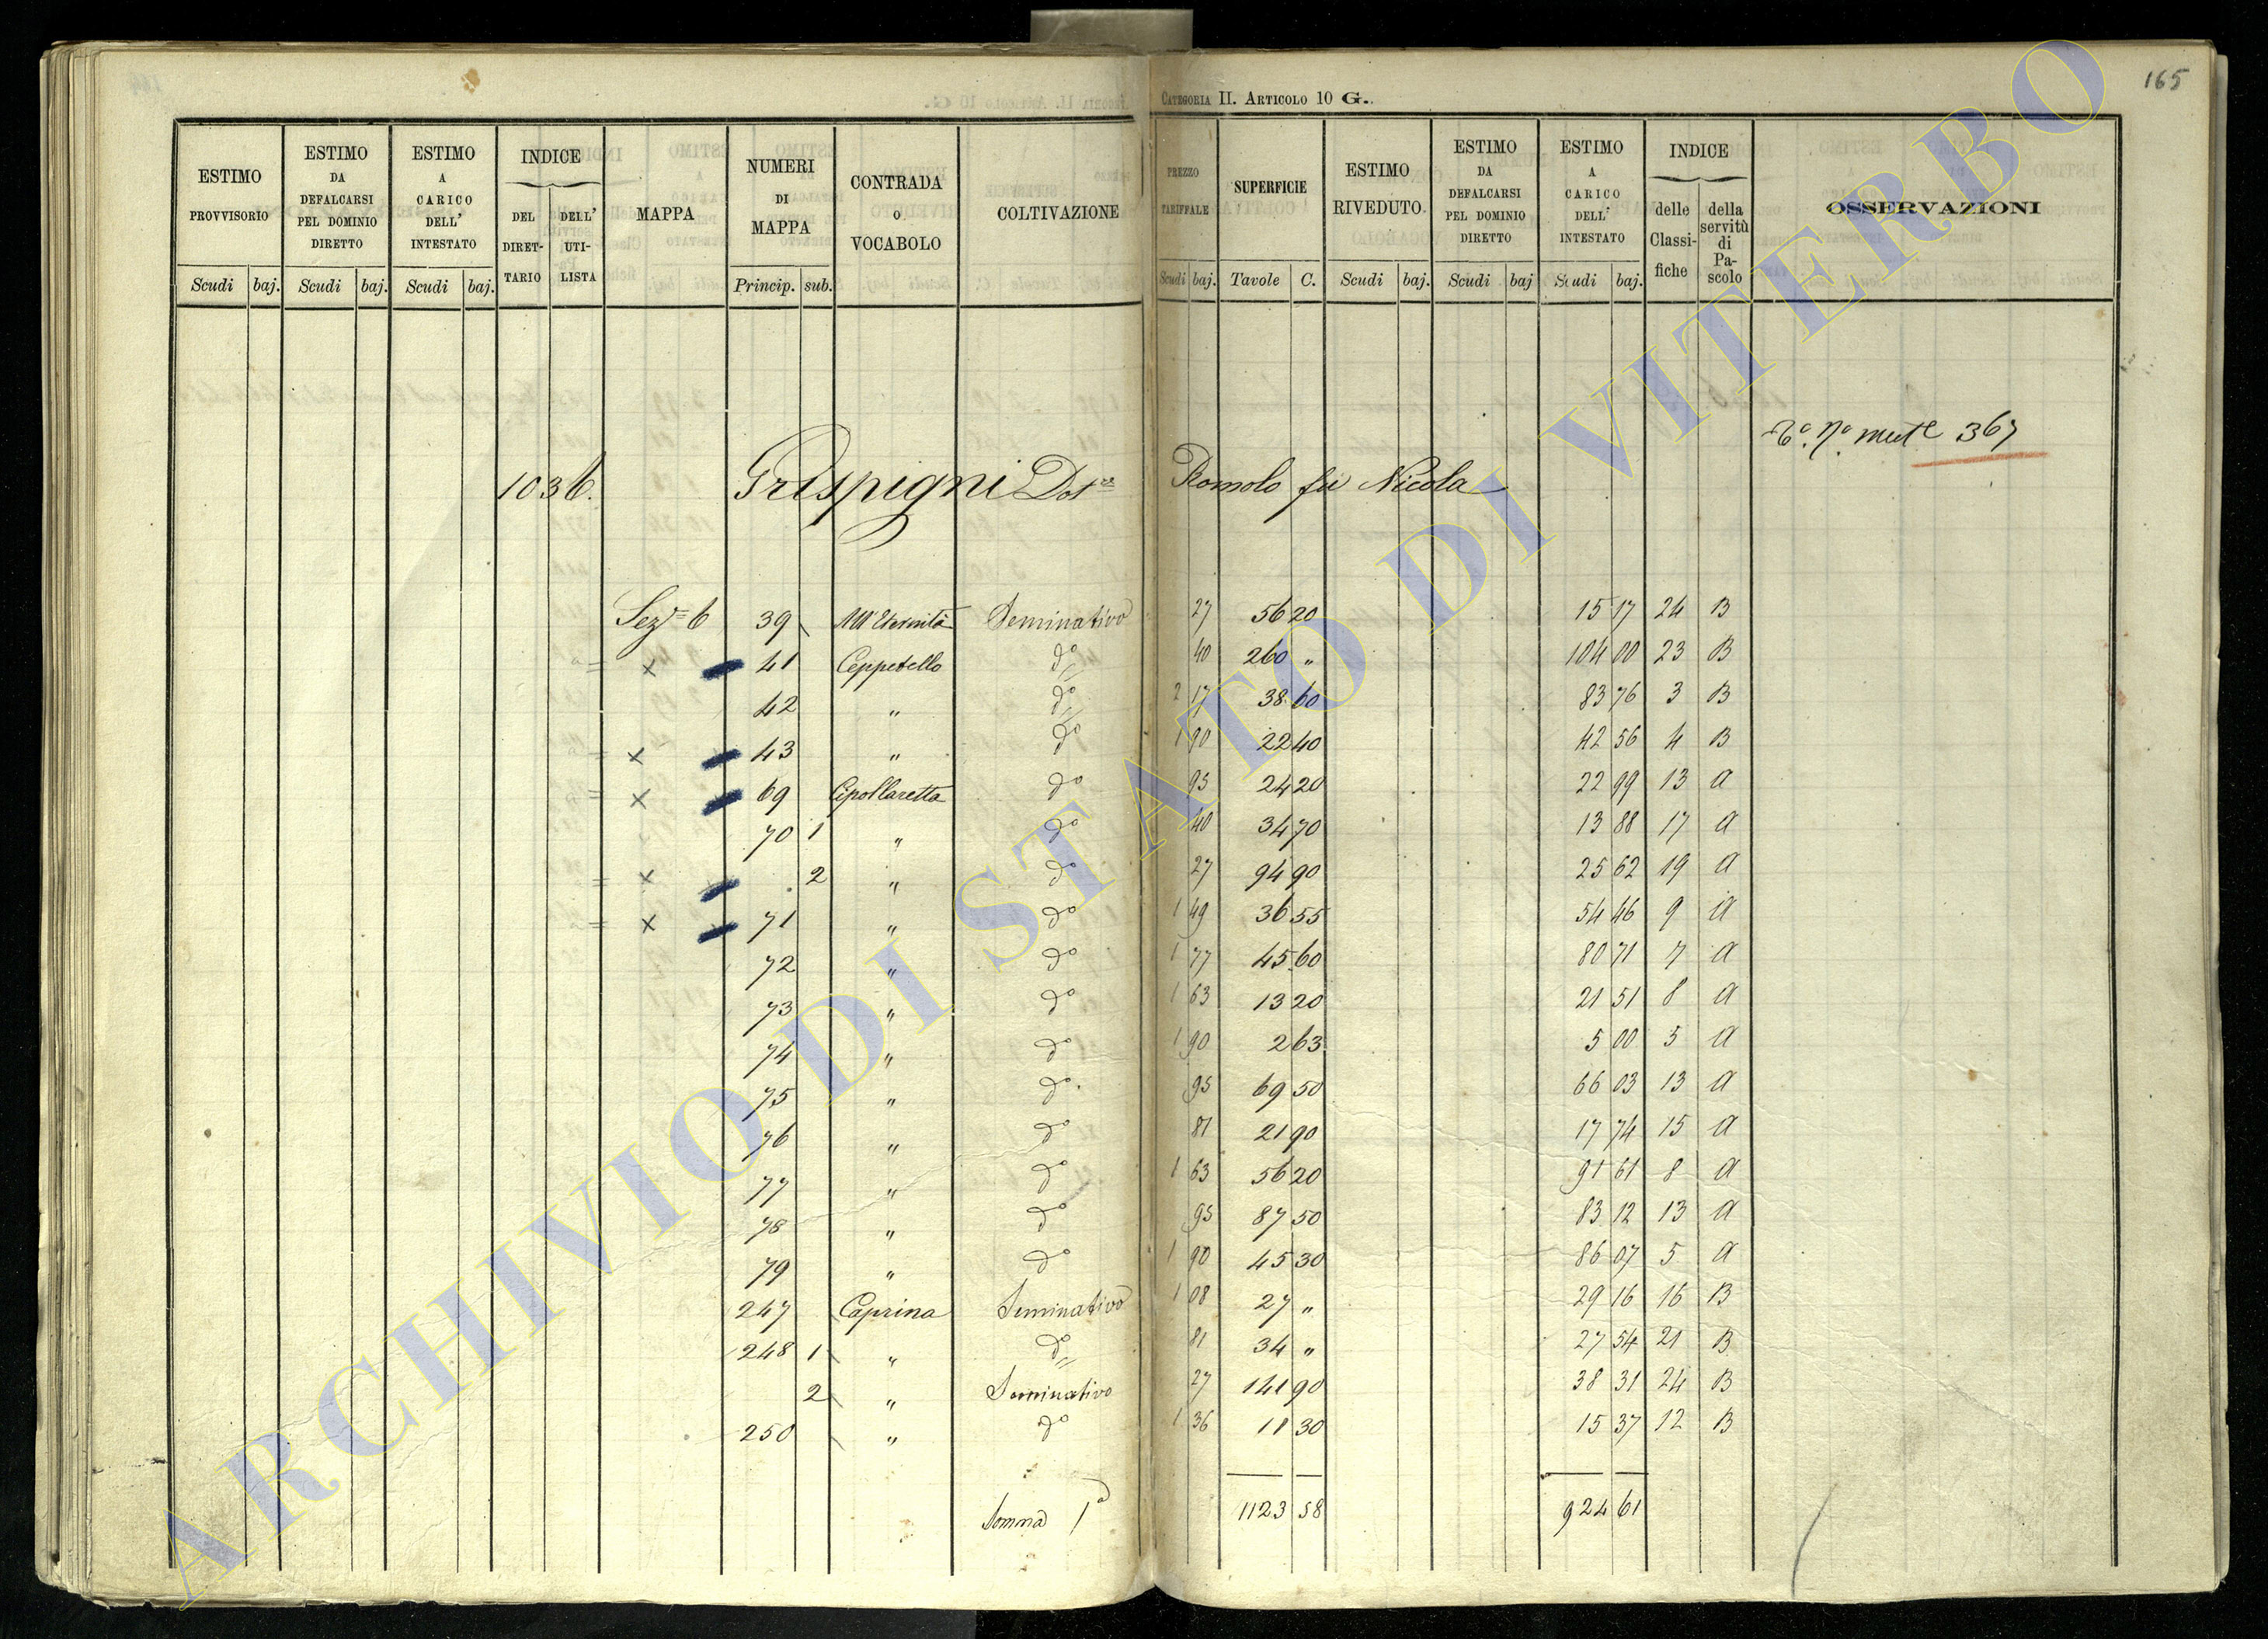 165
CATEGORIA II. ARTICOLO 10 G.
ESTIMO PROVVISORIO
ESTIMO DA DEFALCARSI PEL DOMINIO DIRETTO
ESTIMO A CARICO DELL' INTESTATO
INDICE
DEL DIRET- TARIO
DELL' UTI- LISTA
MAPPA
NUMERI DI MAPPA
CONTRADA O VOCABOLO
COLTIVAZIONE
PREZZO TARIFFALE
SUPERFICIE
ESTIMO RIVEDUTO
ESTIMO DA DEFALCARSI PEL DOMINIO DIRETTO
ESTIMO A CARICO DELL' INTESTATO
INDICE
delle Classi- fiche
della servitù di Pa- scolo
OSSERVAZIONI
Scudi baj. Scudi baj. Scudi baj. Princip. sub. Scudi baj. Tavole C. Scudi baj. Scudi baj Scudi baj.
367
1036. Grispigni Dot Romolo fu Nicola
Sez 6 39 All'Eternità Seminativo 27 56 20 15 17 24 B
x 41 Ceppetello do 40 260 „ 104 00 23 B
42 „ do 2 17 38 60 83 76 3 B
x 43 „ do 1 90 22 40 42 56 4 B
x 69 Cipollaretta do 95 24 20 22 99 13 a
70 1 „ do 40 34 70 13 88 17 a
x 2 „ do 27 94 90 25 62 19 a
x 71 „ do 1 49 36 55 54 46 9 a
72 „ do 1 77 45 60 80 71 7 a
73 „ do 1 63 13 20 21 51 8 a
74 „ do 1 90 2 63 5 00 5 a
75 „ do 95 69 50 66 03 13 a
76 „ do 81 21 90 17 74 15 a
77 „ do 1 63 56 20 91 61 8 a
78 „ do 95 87 50 83 12 13 a
79 „ do 1 90 45 30 86 07 5 a
247 Caprina Seminativo 1 08 27 „ 29 16 16 B
248 1 „ do 81 34 „ 27 54 21 B
2 „ Seminativo 27 141 90 38 31 24 B
250 „ do 1 36 11 30 15 37 12 B
Somma 1a 1123 58 924 61
ARCHIVIO DI STATO DI VITERBO